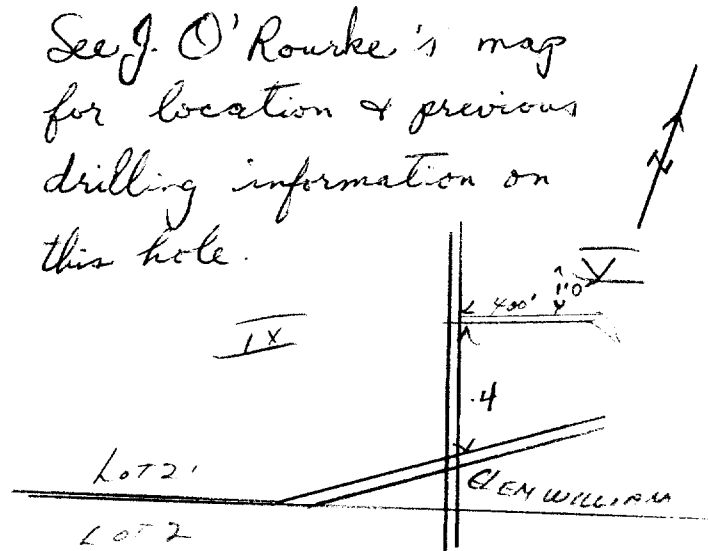 See J. O'Rourke's map
for location & previous
drilling information on
this hole.
N
V
400'
IX
.4
LOT 2
LOT 2